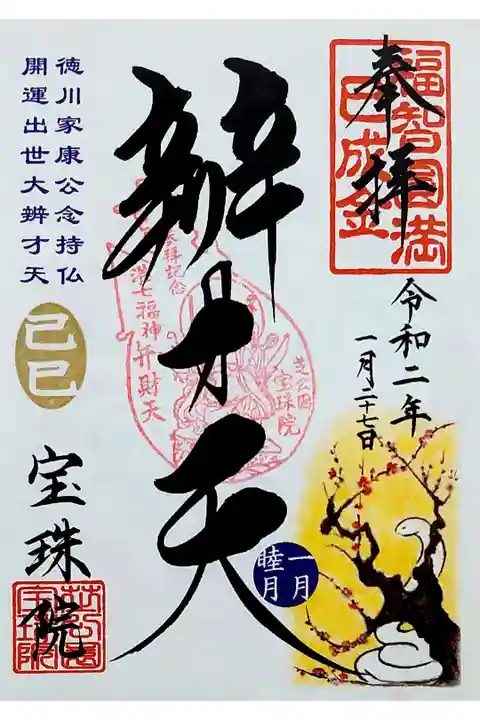 奉拝
福智円満
巳成金
令和二年
一月二十七日
辨才天
参拝記念
港七福神弁財天
芝公園
宝珠院
一月
睦月
徳川家康公念持仏
開運出世大辨才天
己巳
宝珠院